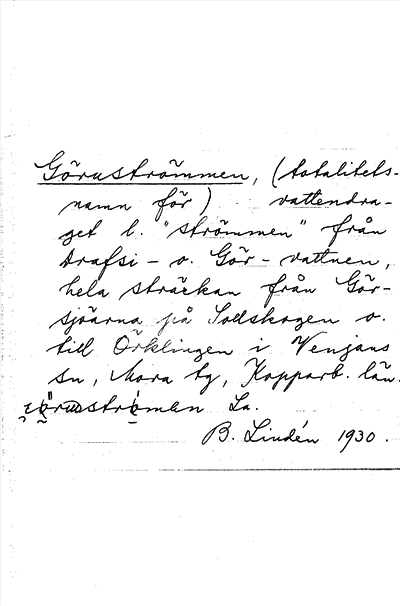 Göruströmmen, (totalitets-
namn för) vattendra-
get l. "strömmen" från
Drafsi- o. Gör-vattnen,
hela sträckan från Gör-
sjöarna på Sollskogen o.
till Örklingen i Venjans
sn, Mora tg, Kopparb. län.
La.
B. Lindén 1930.